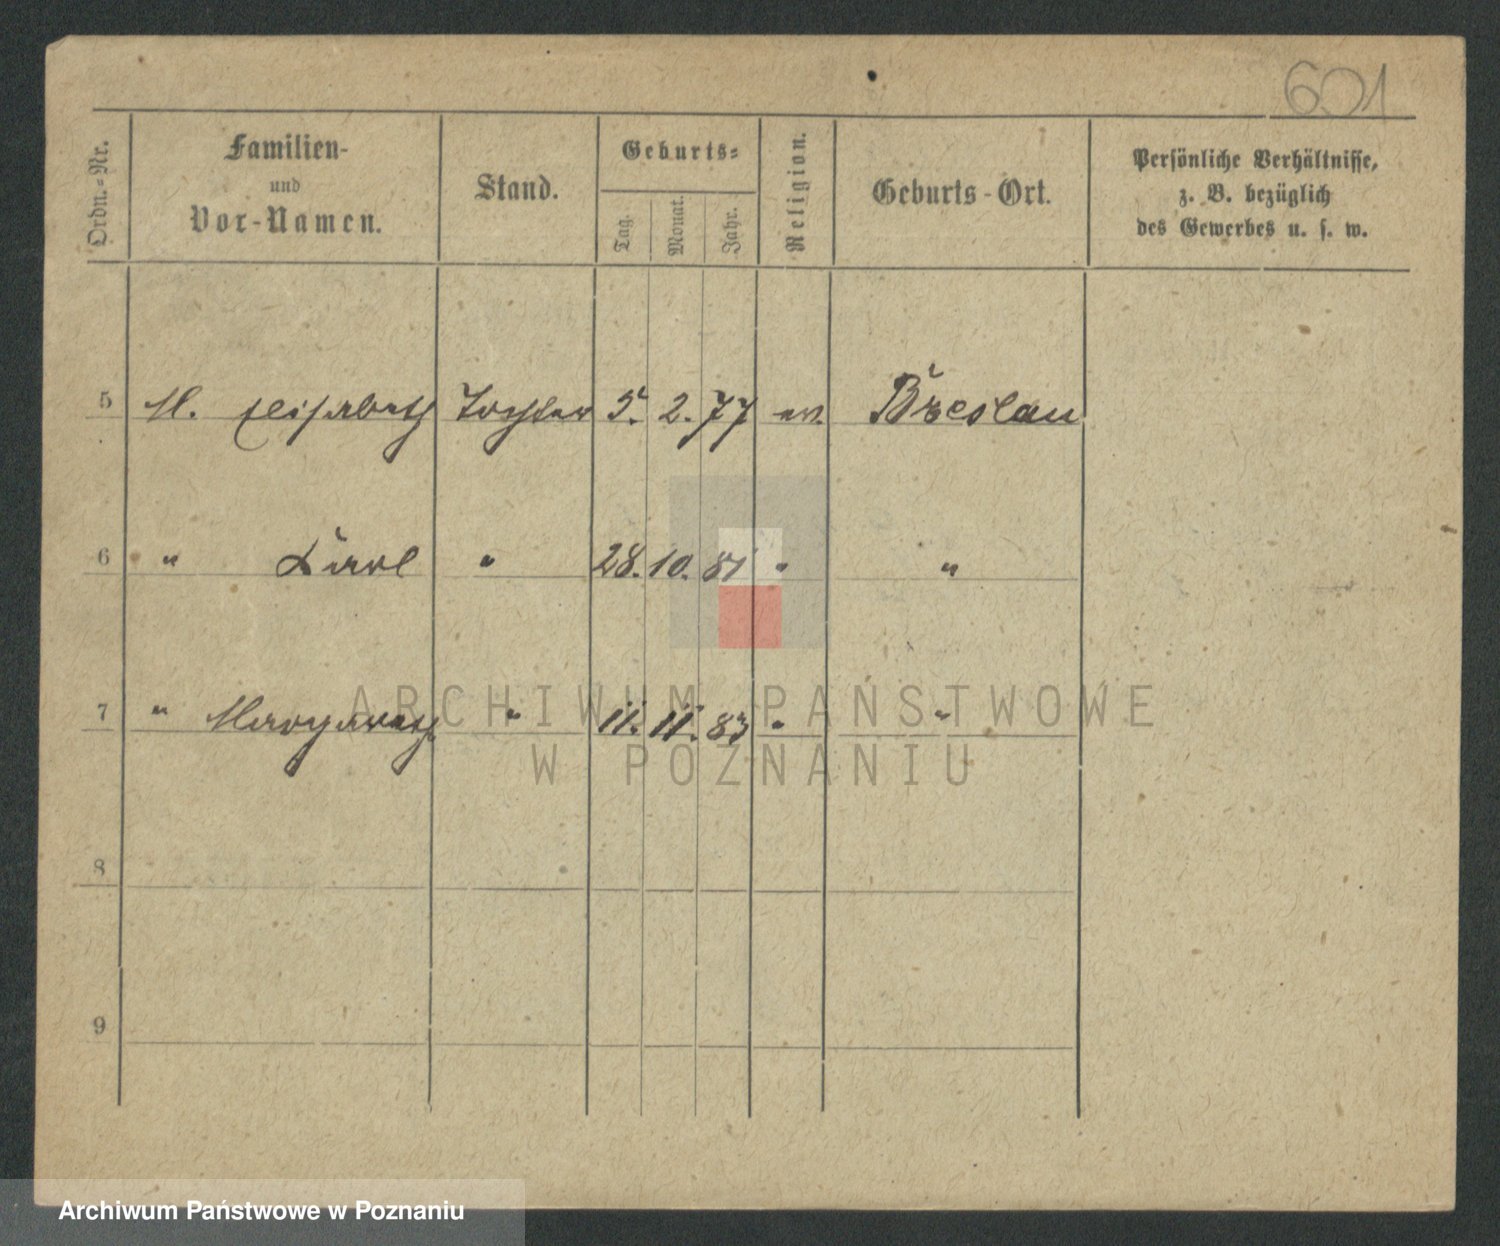 601
Ordn.-Nr.
Familien-
und
Vor-Namen.
Stand.
Geburts-
Tag.
Monat.
Jahr.
Religion.
Geburts-Ort.
Persönliche Verhältnisse,
z. B. bezüglich
des Gewerbes u. s. w.
5 M. Elisabeth Tochter 5. 2. 77 ev. Breslau
6 " Karl " 28. 10. 81 " "
7 " Margareth " 11. 11. 83 " "
8
9
ARCHIWUM PAŃSTWOWE
W POZNANIU
Archiwum Państwowe w Poznaniu